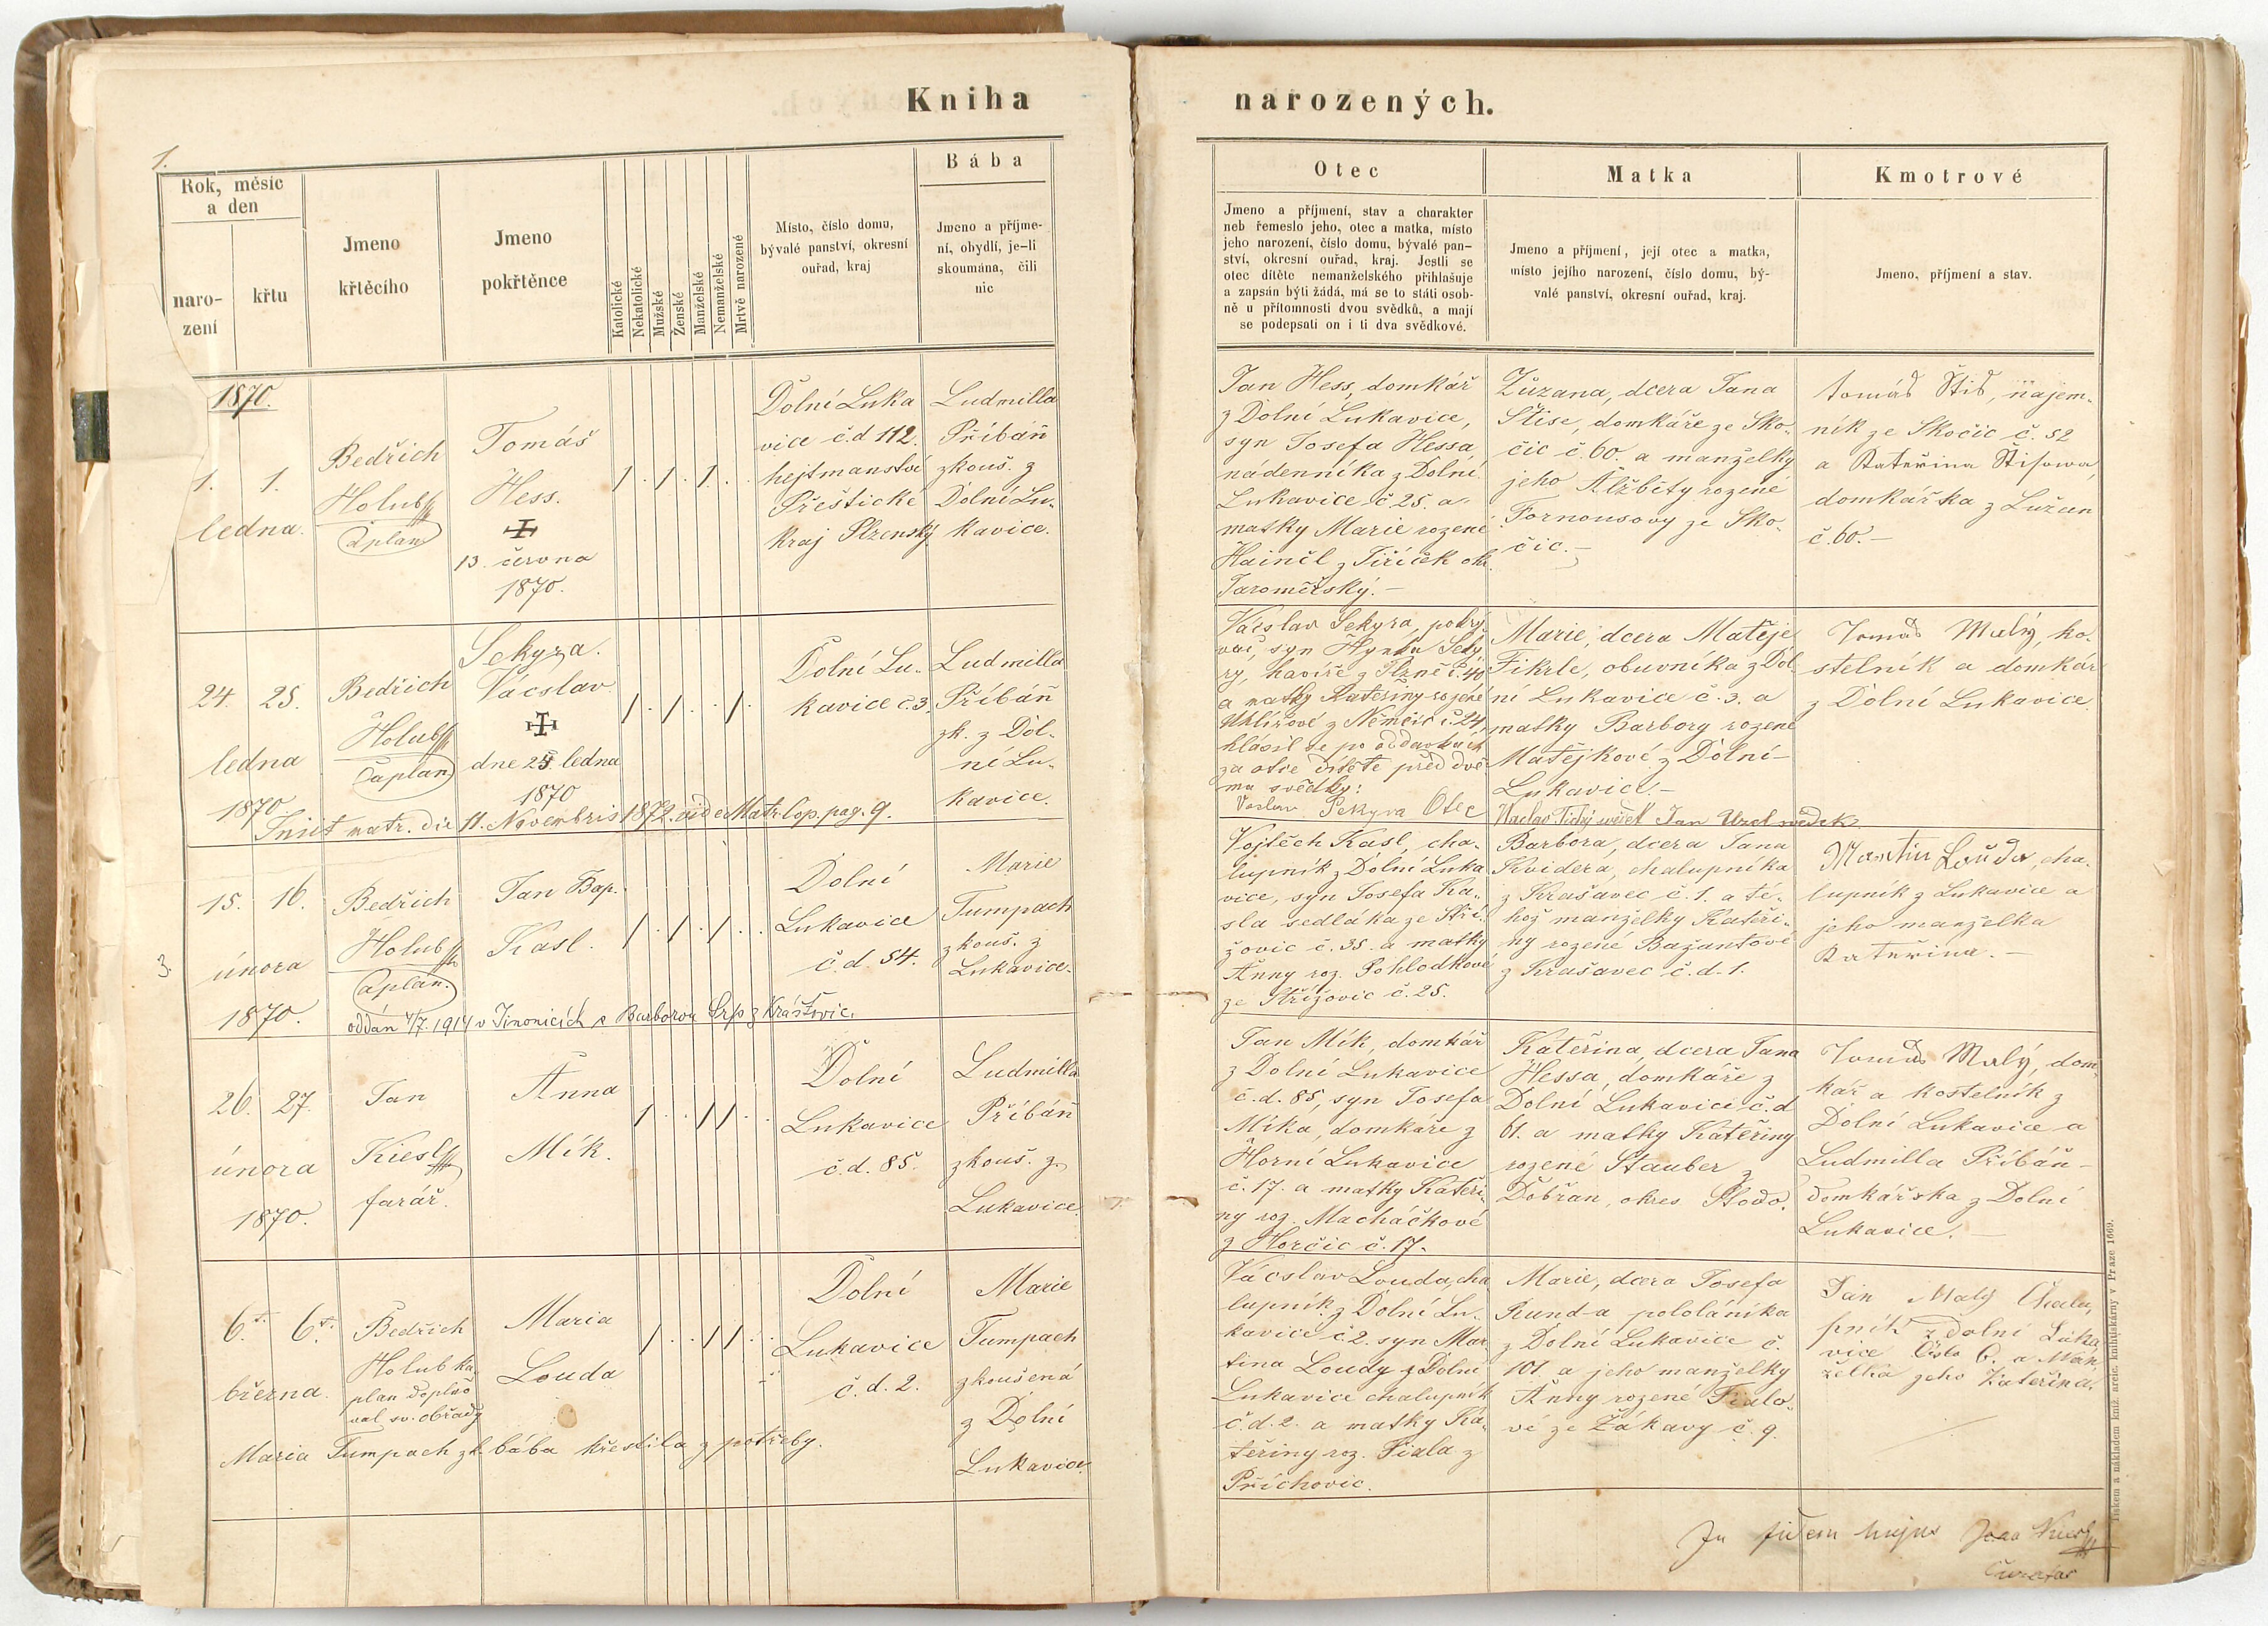 Kniha
narozených.
1.
Rok, měsíc
a den
naro-
zení
křtu
Jmeno
křtěcího
Jmeno
pokřtěnce
Katolické
Nekatolické
Mužské
Ženské
Manželské
Nemanželské
Mrtvě narozené
Místo, číslo domu,
bývalé panství, okresní
ouřad, kraj
Bába
Jmeno a příjme-
ní, obydlí, je-li
skoumána, čili
nic
Otec
Jmeno a příjmení, stav a charakter
neb řemeslo jeho, otec a matka, místo
jeho narození, číslo domu, bývalé pan-
ství, okresní ouřad, kraj. Jestli se
otec dítěte nemanželského přihlašuje
a zapsán býti žádá, má se to státi osob-
ně u přítomnosti dvou svědků, a mají
se podepsati on i ti dva svědkové.
Matka
Jmeno a příjmení, její otec a matka,
místo jejího narození, číslo domu, bý-
valé panství, okresní ouřad, kraj.
Kmotrové
Jmeno, příjmení a stav.
1870.
1. 1.
ledna.
Bedřich
Holub
Caplan
Tomáš
Hess.
13. června
1870.
1 . 1 . 1 . .
Dolní Luka
vice č.d 112.
hejtmanství
Přeštické
kraj Plzenský.
Ludmilla
Přibáň
zkouš. z
Dolní Lu-
kavice.
Jan Hess, domkář
z Dolní Lukavice,
syn Josefa Hessa,
nádenníka z Dolní
Lukavice č. 25. a
matky Marie rozené
Hainčl z Jiříček okr.
Jaroměřský.-
Zůzana, dcera Jana
Štise, domkáře ze Sko-
čic č. 60. a manželky
jeho Alžběty rozené
Fornousovy ze Sko-
čic.-
Tomáš Štis, nájem-
ník ze Skočic č. 52
a Kateřina Štisowa
domkářka z Lužan
č. 60.-
24. 25.
ledna
1870
Bedřich
Holub
Caplan
Sekyra.
Vácslav
dne 25 ledna
1870
1 . 1 . . 1 .
Dolní Lu-
kavice č. 3.
Ludmilla
Přibáň
zk. z Dol-
ní Lu-
kavice.
Insit matr. die 11. Novembris 1872. vide Matr. Cop. pag. 9.
Vácslav Sekyra, pokrý-
vač, syn Hynka Seky-
ry, havíře z Plzně č. 40
a matky Kateřiny rozené
Uhlířové z Němčic č. 24,
hlásil se po oddavkách
za otce dítěte před dvě-
ma svědky:
Vaclav Sekyra Otec
Marie, dcera Matěje
Fikrle, obuvníka z Dol-
ní Lukavice č. 3. a
matky Barbory rozené
Matějkové z Dolní-
Lukavice.-
Waclav Tichý svědek Jan Uzel svědek
Tomáš Malý, ko-
stelník a domkář
z Dolní Lukavice.
3.
15. 16.
února
1870.
Bedřich
Holub
Caplan.
Jan Bap.
Kasl.
1 . 1 . 1 . .
Dolní
Lukavice
č. d. 54.
Marie
Tumpach
zkouš. z
Lukavice.
oddán 4/7. 1914 v Jinonicích s Barborou Srp z Kráštovic.
Vojtěch Kasl, cha-
lupník z Dolní Luka
vice, syn Josefa Ka-
sla sedláka ze Stří-
žovic č. 35. a matky
Anny roz. Pohlodkové
ze Střížovic č. 25.
Barbora, dcera Jana
Kvidera, chalupníka
z Krašavec č. 1. a té-
hož manželky Kateři-
ny rozené Bažantové
z Krašavec č. d. 1.
Martin Louda, cha-
lupník z Lukavice a
jeho manželka
Kateřina.-
26. 27.
února
1870.
Jan
Kiesl
farář.
Anna
Mík.
1 . . 1 1 . .
Dolní
Lukavice
č. d. 85.
Ludmilla
Přibáň
zkouš. z
Lukavice.
Jan Mík, domkář
z Dolní Lukavice
č. d. 85, syn Josefa
Míka, domkáře z
Horní Lukavice
č. 17. a matky Kateři-
ny roz. Macháčkové
z Horčic č. 17.
Kateřina, dcera Jana
Hessa, domkáře z
Dolní Lukavice č. d
61. a matky Kateřiny
rozené Stauber z
Dobřan, okres Stodo.
Tomáš Malý, dom-
kář a kostelník z
Dolní Lukavice a
Ludmilla Přibáň-
domkářska z Dolní
Lukavice.
6. 6.
března.
Bedřich
Holub ka-
plan doplňo
val sv. obřady
Maria
Louda
1 . . 1 1 . .
Dolní
Lukavice
č. d. 2.
Marie
Tumpach
zkoušená
z Dolní
Lukavice.
Maria Tumpach zk. bába křestila z potřeby.
Vácslav Louda, cha
lupník z Dolní Lu-
kavice č 2. syn Mar-
tina Loudy z Dolní
Lukavice chalupník
č. d. 2. a matky Ka-
teřiny roz. Fiala z
Příchovic.
Marie, dcera Josefa
Runda pololáníka
z Dolní Lukavice č.
101. a jeho manželky
Anny rozené Fialo-
vé ze Žákavy č. 9.
Jan Malý Chalu
pník z dolní Luka
vice Čislo 6. a Man-
želka jeho Kateřina.
In fidem hujus Joan Kiesl
Curatus
Tiskem a nákladem kníž. arcib. knihtiskárny v Praze 1669.